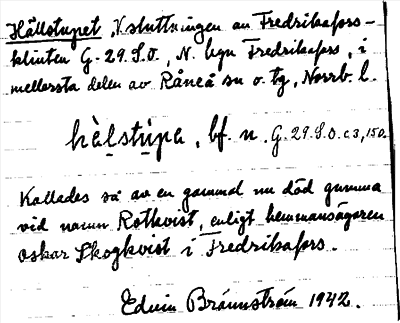 Hällstupet, V sluttningen av Fredriksfors-
klinten G. 29. S.O., N. byn Fredriksfors, i
mellersta delen av Råneå sn o. tg, Norrb. l.
hèlstùpa, bf. n. G. 29. S.O. c 3, 150.
Kallades så av en gammal nu död gumma
vid namn Rotkvist, enligt hemmansägaren
Oskar Skogkvist i Fredriksfors.
Edvin Brännström 1942.